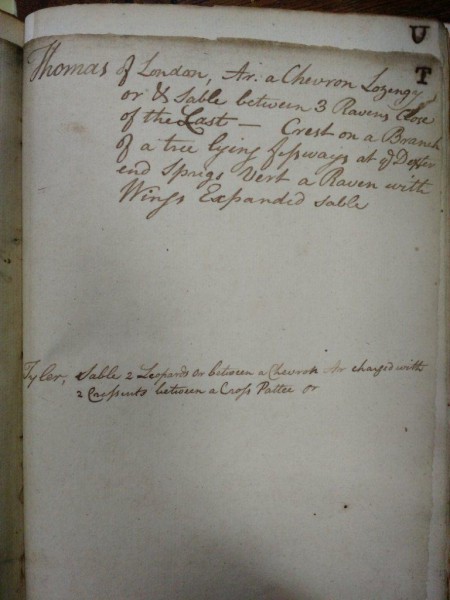 U
T
Thomas of London, Ar: a Chevron Lozengy
or & Sable between 3 Ravens Close
of the Last — Crest on a Branch
of a tree lying fessways at ye Dexter
end Sprigs Vert a Raven with
Wings Expanded sable
Tyler, Sable 2 Leopards or between a Chevron Ar charged with
2 Cressents between a Cross Pattee or